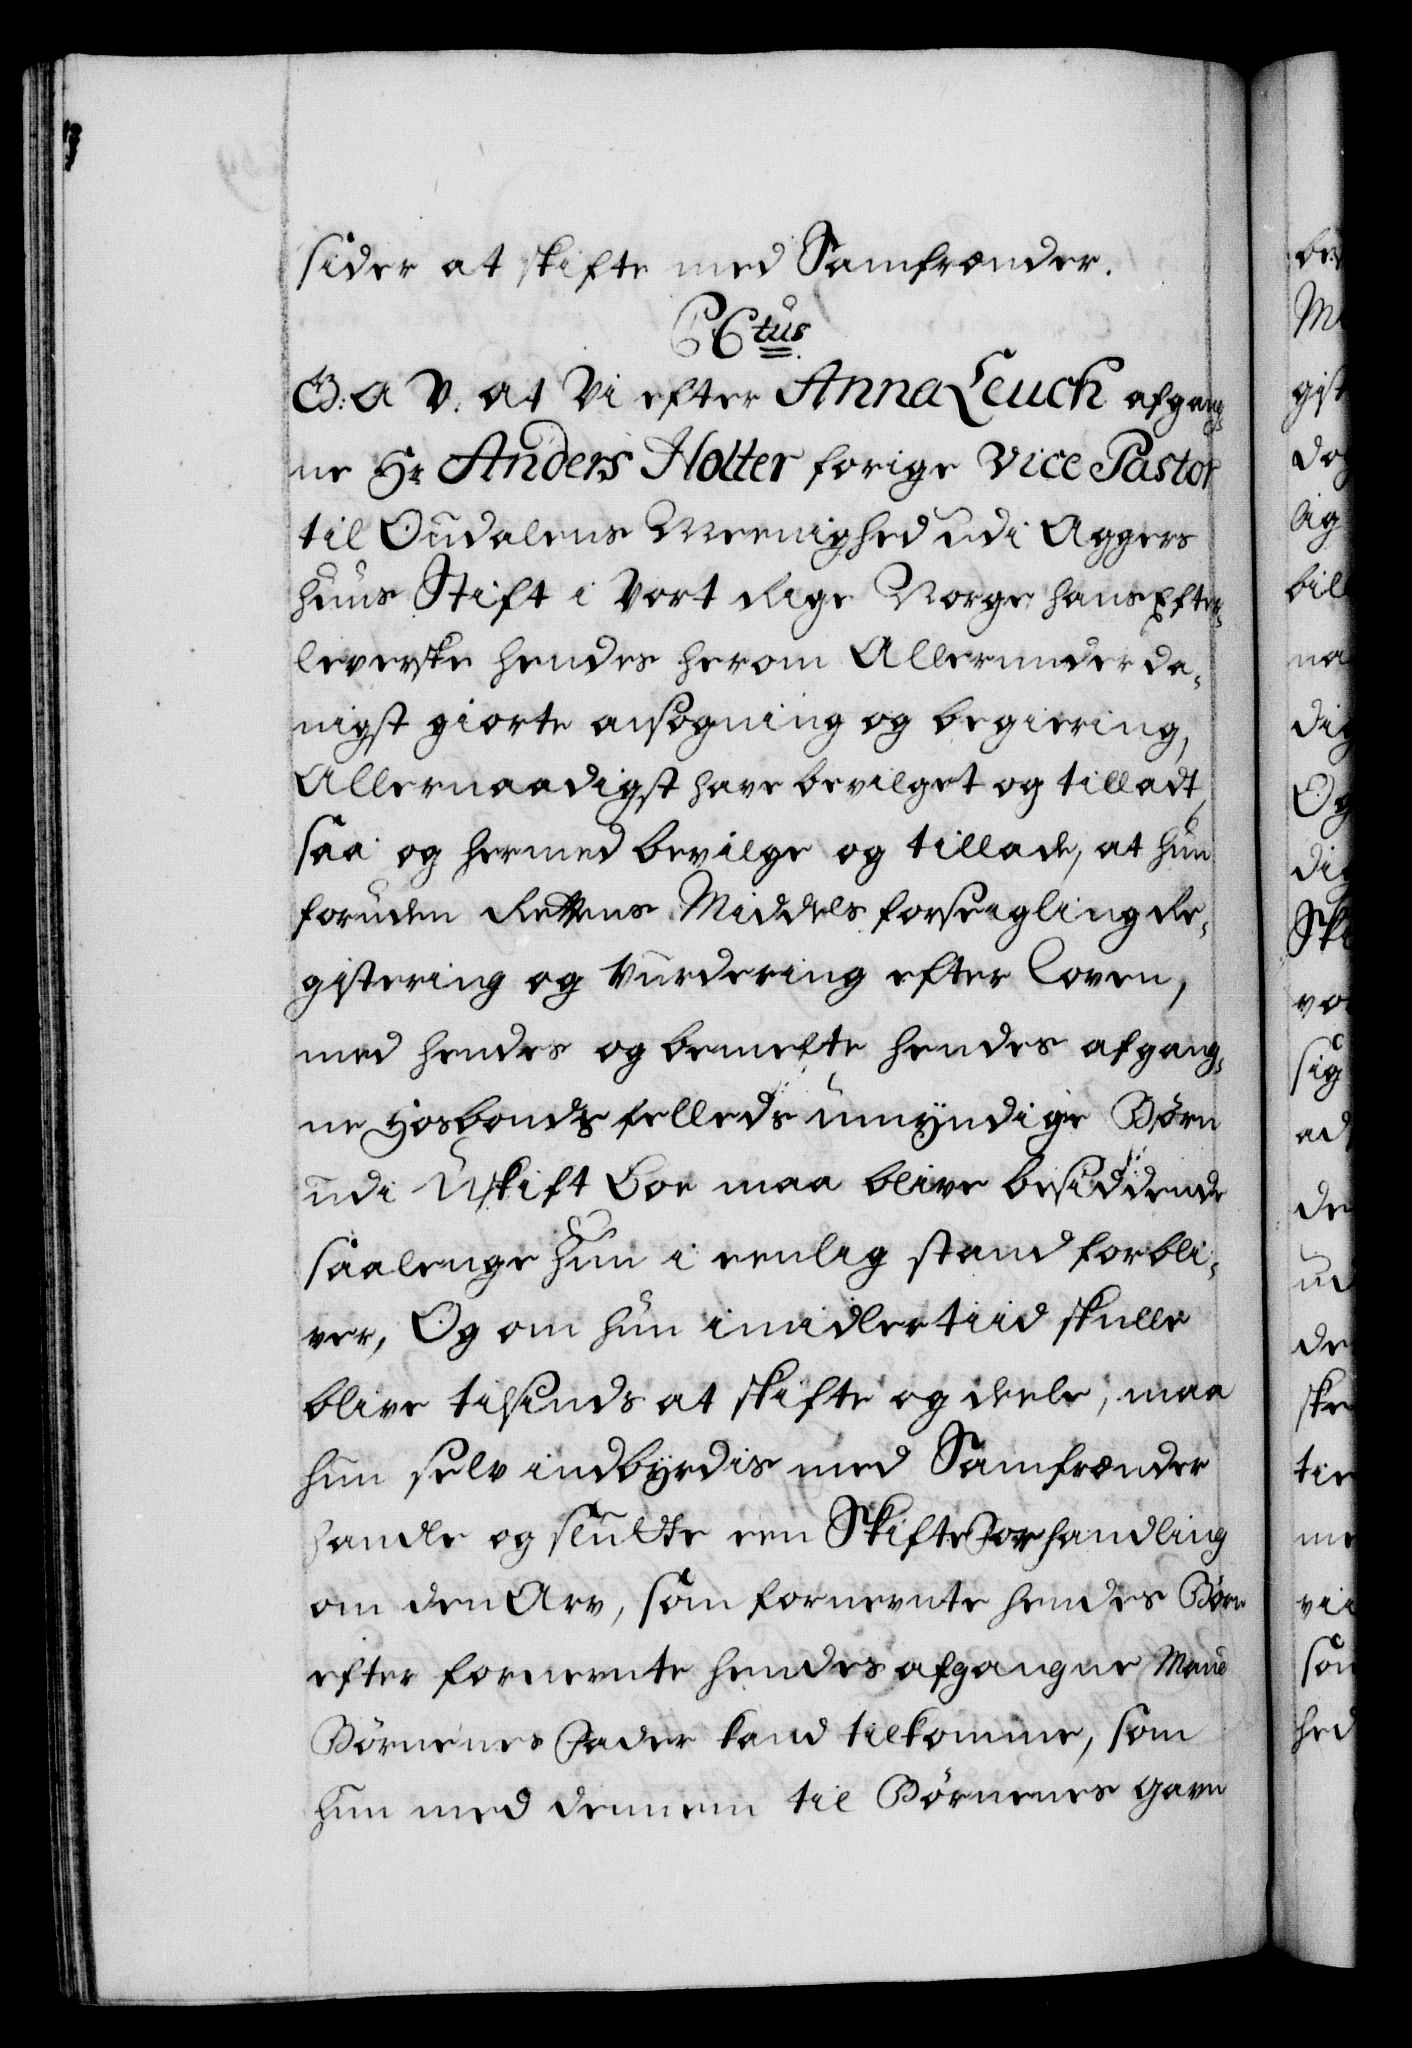 sider at skifte med Samfrænder.
C Ctus
G: A V. at Vi efter Anna Leuch afgang
ne Hr Anders Holter forige Vice Pastor
til Oudalens Meenighed udi Aggers
huus Stift i Vort Rige Norge hans Efter-
leverske hendes herom Allerunderda-
nigst giorte ansøgning og begiering,
Allernaadigst have bevilget og tilladt,
saa og hermed bevilge og tillade, at hun
foruden Rettens Middels forseigling Re-
gistering og Vurdering efter Loven,
med hendes og bemelte hendes afgang-
ne Hosbonds felleds umyndige Børn
udi Uskift Boe maa blive besiddende
saalenge hun i eenlig stand forbli-
ver, Og om hun imidlertiid skulle
blive tilsinds at skifte og deele, maa
hun selv indbyrdis med Samfrænder
handle og slutte een Skifte Forhandling
om den Arv, som fornevnte hendes Børn
efter fornevnte hendes afgangne Mand
Børnenes Fader kand tilkomme, som
hun med dennem til Børnenes gavn